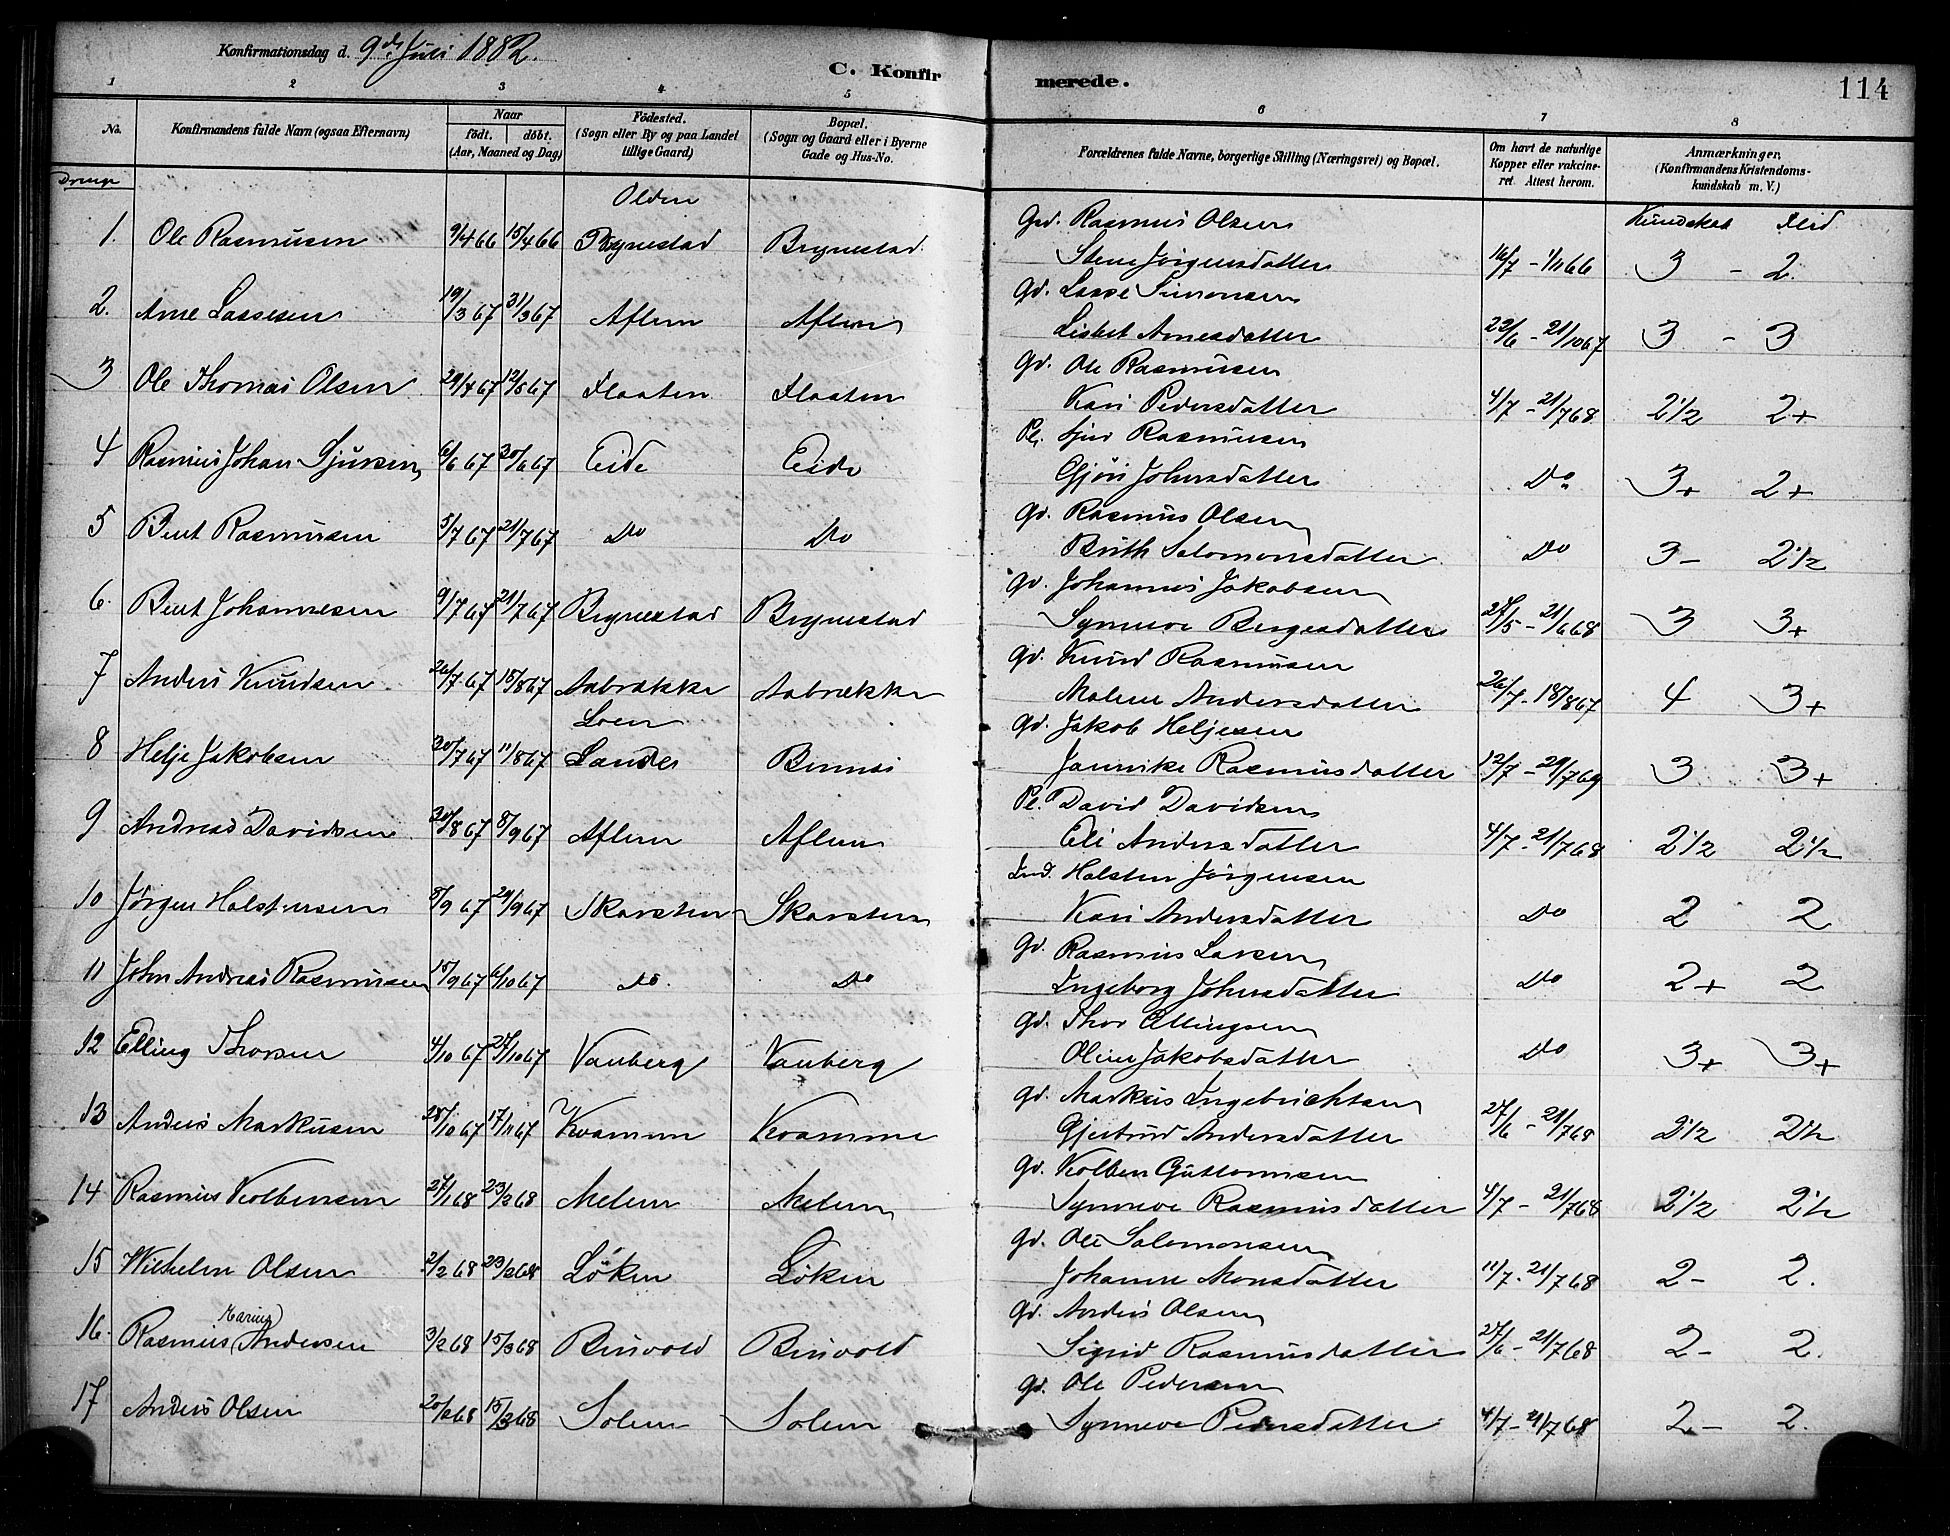 Konfirmationsdag d. 9de Juli 1882.
C. Konfir merede. 114
1 2 3 4 5 6 7 8
No. Konfirmandens fulde Navn (ogsaa Efternavn) Naar födt. döbt. (Aar, Maaned og Dag) Födested. (Sogn eller By og paa Landet tillige Gaard) Bopæl. (Sogn og Gaard eller i Byerne Gade og Hus-No. Forældrenes fulde Navne, borgerlige Stilling (Næringsvei) og Bopæl. Om havt de naturlige Kopper eller vakcineret. Attest herom. Anmærkninger. (Konfirmandens Kristendomskundskab m. V.)
Drenge
Olden Kundskab Flid
Grd. Rasmus Olsen
1. Ole Rasmusen 9/4 66 15/4 66 Brynestad Brynestad Stine Jörgensdatter 16/7 - 1/11 66 3 - 2.
Gd. Lasse Simonsen
2. Arne Lassesen 19/3 67 31/3 67 Aflem Aflem Lisbet Arnesdatter 22/6 - 21/10 67 3 - 3
Gd. Ole Rasmusen
3 Ole Thomas Olsen 29/4 67 12/5 67 Flaaten Flaaten Kari Pedersdatter 4/7 - 21/7 68 2 1/2 2+
Pl. Sjur Rasmusen
4 Rasmus Johan Sjursen 6/6 67 20/6 67 Eide Eide Gjöri Johnsdatter Do 3+ 2+
Gd. Rasmus Olsen
5 Bent Rasmusen 5/7 67 21/7 67 Do Do Brith Salomonsdatter Do 3- 2 1/2
Gd. Johannes Jakobsen
6. Bent Johannesen 9/7 67 21/7 67 Brynestad Brynestad Synneve Bergesdatter 28/5 - 21/6 68 3 3+
Gd. Knud Rasmusen
7 Anders Knudsen 26/7 67 18/8 67 Aabrække Aabrække Malene Andersdatter 26/7 - 18/8 67 4 3+
Loen Gd. Jakob Heljesen
8 Helje Jakobsen 20/7 67 11/8 67 Sandes Jannike Rasmusdatter 12/7 - 29/7 69 3 3+
Pl. David Davidsen
9 Andreas Davidsen 20/8 67 8/9 67 Aflem Aflem Eli Andersdatter 4/7 - 21/7 68 2 1/2 2 1/2
Ind. Holsten Jörgensen
10 Jörgen Holstensen 8/9 67 29/9 67 Skarsten Skarsten Kari Andersdatter Do 2 2
Gd. Rasmus Larsen
11 John Andreas Rasmusen 15/9 67 6/10 67 Do. Do Ingeborg Johnsdatter Do 2+ 2
Gd. Thor Ellingsen
12 Elling Thorsen 4/10 67 27/10 67 Vauberg Vauberg Oline Jakobsdatter Do 3+ 3+
Gd. Markus Ingebrichtsen
13 Anders Markusen 28/10 67 17/11 67 Kvamme Kvamme Gjertrud Andersdatter 27/6 - 21/7 68 2 1/2 2 1/2
Gd. Kolben Guttormsen
14 Rasmus Kolbensen 27/1 68 23/2 68 Melem Melem Synneve Rasmusdatter 4/7 - 21/7 68 2 1/2 2 1/2
Gd. Ole Salomonsen
15 Wilhelm Olsen 2/2 68 23/2 68 Löken Löken Johanne Monsdatter 11/7 - 21/7 68 2- 2.
Marius Gd. Anders Olsen
16. Rasmus Andersen 3/2 68 15/3 68 Brisvold Brisvold Sigrid Rasmusdatter 27/6 - 21/7 68 2- 2.
Gd. Ole Pedersen
17 Anders Olsen 20/2 68 15/3 68 Solem Solem Synneve Pedersdatter 4/7 - 21/7 68 2- 2.